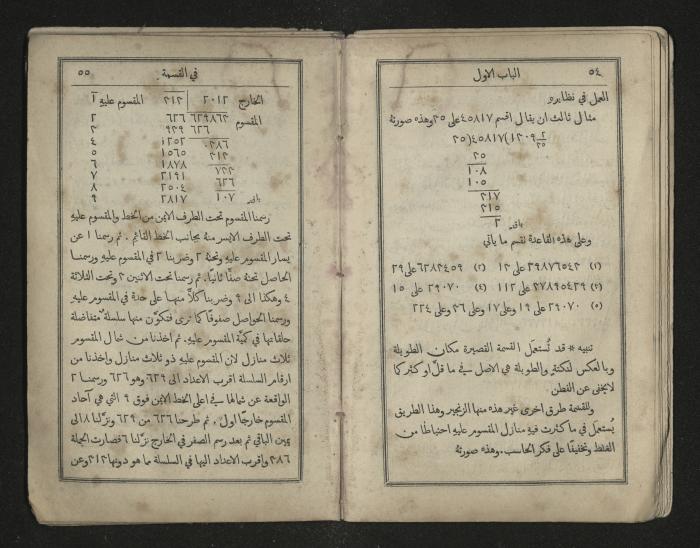 ٥٤ الباب الاول
العمل في نظايرهِ
مثال ثالث ان يقال اقسم ٤٥٨١٧ على ٣٥ وهذه صورتهُ
٣٥)٤٥٨١٧(١٣٠٩ ٢/٣٥
٣٥
١٠٨
١٠٥
٣١٧
٣١٥
٢ باقٍ
وعلى هذه القاعدة نقسم ما ياتي
(١) ٣٩٨٧٦٥٤٣ على ١٣ (٢) ٦٢٨٣٤٥٩ على ٣٩
(٣) ٣٧٨٩٥٤٣٩ على ١١٢ (٤) ٢٩٠٧٠ على ١٥
(٥) ٢٩٠٧٠ على ١٩ وعلى ١٧ وعلى ٣٦ وعلى ٢٢٤
تنبيه * قد تُستعمَل القسمة القصيرة مكان الطويلة
وبالعكس لنكتةٍ والطويلة هي الاصل في ما قلَّ او كثر كما
لا يخفى عن الفطن
وللقسمة طرق اخرى غير هذه منها الزنجير وهذا الطريق
يُستعمل في ما كثرت فيهِ منازل المقسوم عليهِ احتياطًا من
الغلط وتخفيفًا على فكر الحاسب. وهذه صورتهُ
في القسمة ٥٥
الخارج ٢٠١٢ ٣١٣ المقسوم عليهِ ١
المقسوم ٦٢٩٨٦٣ ٦٢٦ ٢
٦٢٦ ٩٣٩ ٣
٠٣٨٦ ١٢٥٢ ٤
٣١٣ ١٥٦٥ ٥
٧٣٣ ١٨٧٨ ٦
٦٢٦ ٢١٩١ ٧
باقٍ ١٠٧ ٢٥٠٤ ٨
٢٨١٧ ٩
رسمنا المقسوم تحت الطرف الايمن من الخط والمقسوم عليهِ
تحت الطرف الايسر منهُ بجانب الخط القائم. ثم رسمنا ١ عن
يسار المقسوم عليهِ وتحتهُ ٢ وضربنا ٢ في المقسوم عليهِ ورسمنا
الحاصل تحتهُ صفًّا ثانيًا. ثم رسمنا تحت الاثنين ٣ وتحت الثلاثة
٤ وهكذا الى ٩ وضربنا كلًّا منها على حدة في المقسوم عليهِ
ورسمنا الحواصل صفوفًا كما ترى فتكوَّن منها سلسلة متفاضلة
حلقاتها في كميَّة المقسوم عليهِ. ثم اخذنا من شمال المقسوم
ثلاث منازل لان المقسوم عليهِ ذو ثلاث منازل واخذنا من
ارقام السلسلة اقرب الاعداد الى ٦٢٩ وهو ٦٢٦ ورسمنا ٢
الواقعة عن شمالها في اعلى الخط الايمن فوق ٩ التي هي آحاد
المقسوم خارجًا اول. ثم طرحنا ٦٢٦ من ٦٢٩ ونزَّلنا ٨ الى
يمين الباقي ثم بعد رسم الصفر في الخارج نزَّلنا ٦ فصارت الجملة
٣٨٦ واقرب الاعداد اليها في السلسلة مما هو دونها ٣١٣ وعن